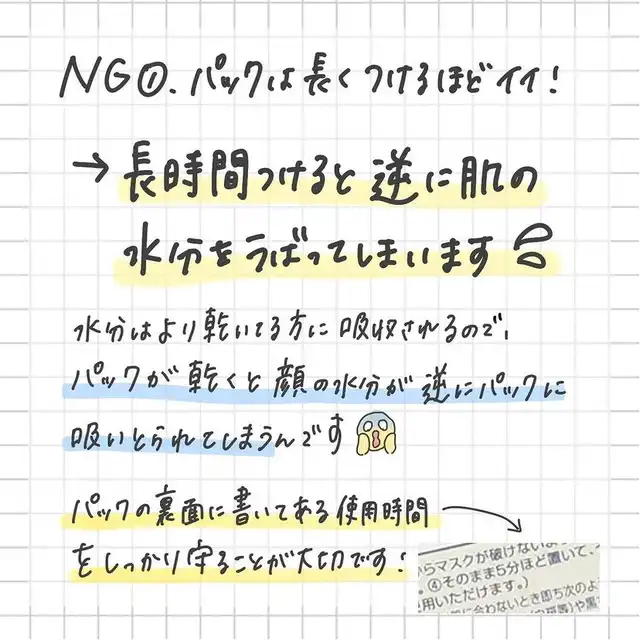 NG①. パックは長くつけるほどイイ!
→ 長時間つけると逆に肌の
水分をうばってしまいます
水分はより乾いてる方に吸収されるので、
パックが乾くと顔の水分が逆にパックに
吸いとられてしまうんです
パックの裏面に書いてある使用時間
をしっかり守ることが大切です!
らマスクが破けないよ
④そのまま5分ほど置いて、
用いただけます。)
に合わないとき即ち次のよ